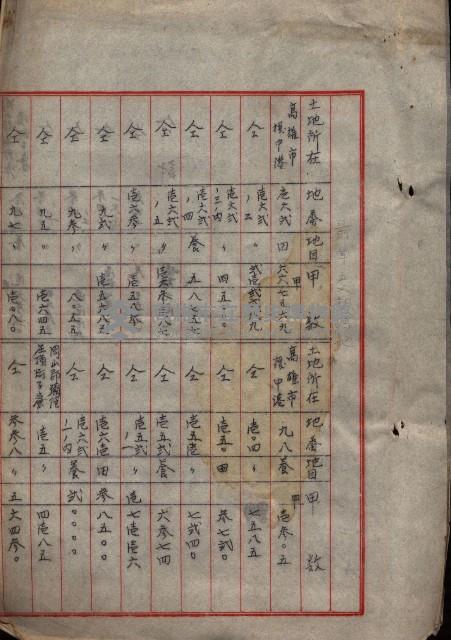 土地所在 地番 地目 甲数
高雄市
援中港 壱六弐 田 六六七五六九
仝 壱六弐ノ二 〃 弐壱弐弐九
仝 壱六弐ノ三ノ内 〃 四五
仝 壱六弐ノ四 養 五八七五七
仝 壱六弐ノ五 〃
仝 壱六参 〃
仝 九六 〃 壱五七八弐
仝 九参 〃 八二五五
仝 九五 〃 壱六四五
仝 九七 〃 壱〇八〇
土地所在 地番 地目 甲数
高雄市
援中港 九八 養 壱参〇五
仝 壱〇四 〃 七五八五
仝 壱五〇 田 参七弐〇
仝 壱五壱 〃 七弐四〇
仝 壱五弐 養 六参七四
仝 壱五弐ノ一 〃 壱七壱壱六
仝 壱六壱 田 参八五〇〇
仝 壱六弐ノ一ノ内 養 弐〇〇〇〇
岡山郡弥陀 壱五 〃 四四壱八五
仝 参参八 〃 五六四参〇